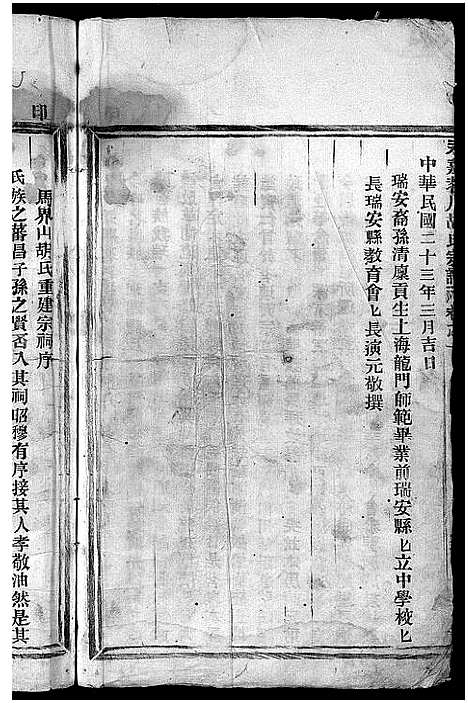 中華民國二十三年三月吉日
瑞安裔孫清廩貢生上海龍門師範畢業前瑞安縣立中學校
長瑞安縣教育會長演元敬撰
印
馬界山胡氏重建宗祠序
氏族之蕃昌子孫之賢否入其祠昭穆有序接其人孝敬油然是其